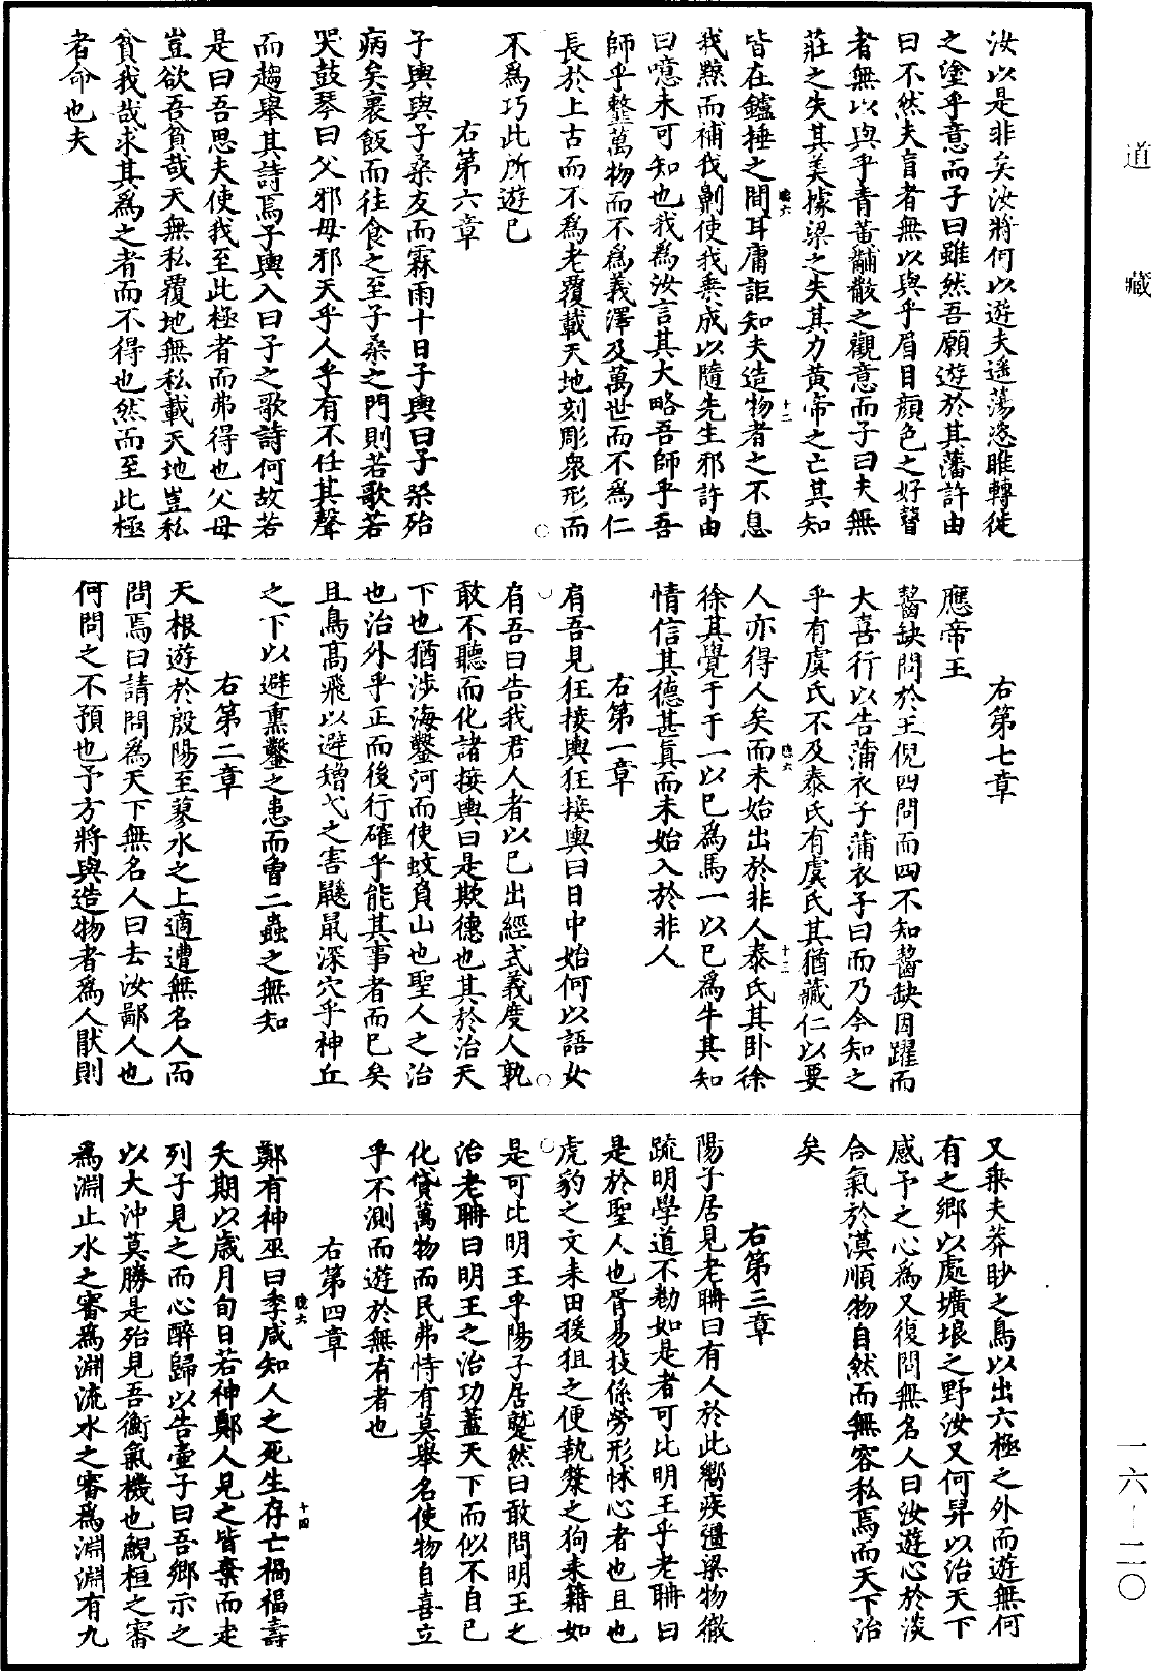 道藏
汝以是非矣汝將何以遊夫遥蕩恣睢轉徙
之塗乎意而子曰雖然吾願遊於其藩許由
曰不然夫盲者無以與乎眉目顔色之好瞽
者無以與乎青黃黼黻之觀意而子曰夫無
莊之失其美據梁之失其力黃帝之亡其知
皆在鑪捶之間耳庸詎知夫造物者之不息
我黥而補我劓使我乘成以隨先生邪許由
曰噫未可知也我爲汝言其大略吾師乎吾
師乎䪠萬物而不爲義澤及萬世而不爲仁
長於上古而不爲老覆載天地刻彫衆形而
不爲巧此所遊已
右第六章
子輿與子桑友而霖雨十日子輿曰子桑殆
病矣裹飯而往食之至子桑之門則若歌若
哭鼓琴曰父邪母邪天乎人乎有不任其聲
而趨舉其詩焉子輿入曰子之歌詩何故若
是曰吾思夫使我至此極者而弗得也父母
豈欲吾貧哉天無私覆地無私載天地豈私
貧我哉求其爲之者而不得也然而至此極
者命也夫
右第七章
應帝王
齧缺問於王倪四問而四不知齧缺因躍而
大喜行以告蒲衣子蒲衣子曰而乃今知之
乎有虞氏不及泰氏有虞氏其猶藏仁以要
人亦得人矣而未始出於非人泰氏其卧徐
徐其覺于于一以己爲馬一以己爲牛其知
情信其德甚真而未始入於非人
右第一章
肩吾見狂接輿狂接輿曰日中始何以語女
肩吾曰告我君人者以己出經式義度人孰
敢不聽而化諸接輿曰是欺德也其於治天
下也猶涉海鑿河而使蚊負山也聖人之治
也治外乎正而後行確乎能其事者而已矣
且鳥高飛以避矰弋之害鼷鼠深穴乎神丘
之下以避熏鑿之患而曾二蟲之無知
右第二章
天根遊於殷陽至蓼水之上適遭無名人而
問焉曰請問爲天下無名人曰去汝鄙人也
何問之不預也予方將與造物者爲人厭則
又乘夫莽眇之鳥以出六極之外而遊無何
有之鄉以處壙埌之野汝又何帠以治天下
感予之心爲又復問無名人曰汝遊心於淡
合氣於漠順物自然而無容私焉而天下治
矣
右第三章
陽子居見老聃曰有人於此嚮疾彊梁物徹
疏明學道不勌如是者可比明王乎老聃曰
是於聖人也胥易技係勞形怵心者也且也
虎豹之文来田猨狙之便執斄之狗来籍如
是可比明王乎陽子居蹵然曰敢問明王之
治老聃曰明王之治功蓋天下而似不自己
化貸萬物而民弗恃有莫舉名使物自喜立
乎不測而遊於無有者也
右第四章
鄭有神巫曰季咸知人之死生存亡禍福壽
夭期以歲月旬日若神鄭人見之皆棄而走
列子見之而心醉歸以告壺子曰吾鄉示之
以大沖莫勝是殆見吾衡氣機也鯢桓之審
爲淵止水之審爲淵流水之審爲淵淵有九
一六-二〇